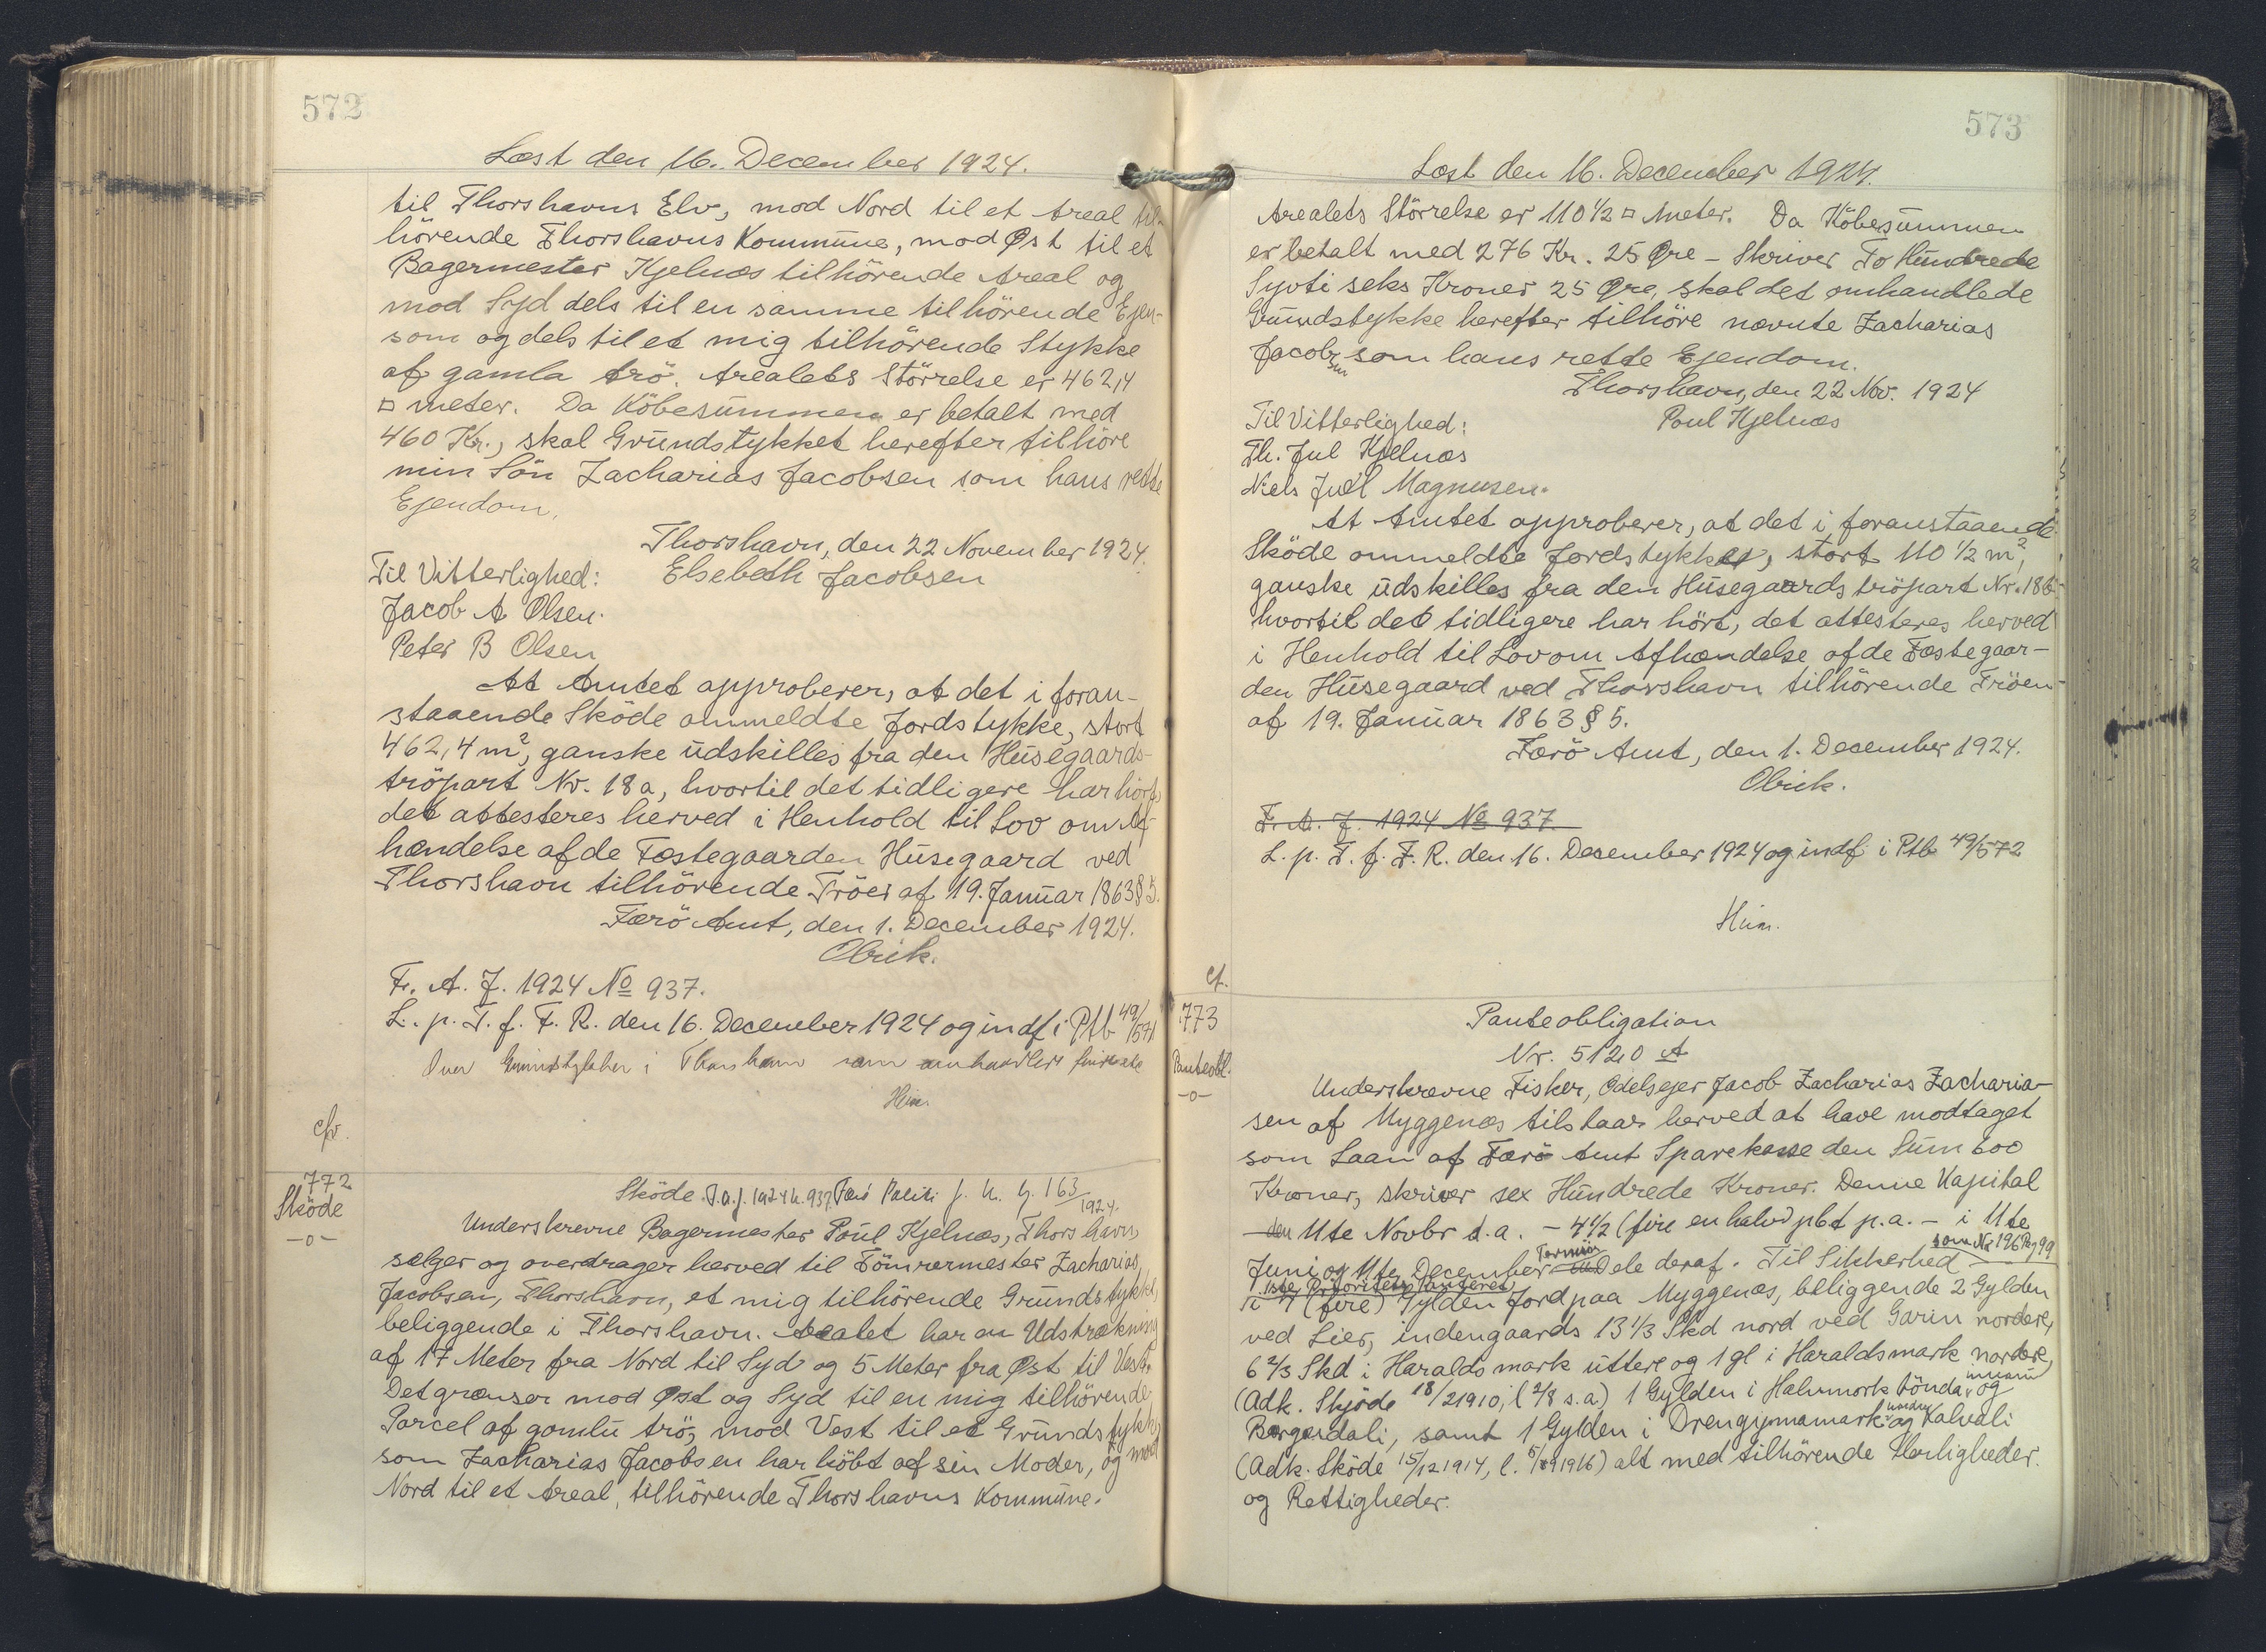 572
Læst den 16. December 1924.
til Thorshavns Elv, mod Nord til et Areal til-
hörende Thorshavns Kommune, mod Øst til et
Bagermester Kjelnæs tilhörende Areal og
mod Syd dels til en samme tilhörende Ejen-
som og dels til et mig tilhörende Stykke
af gamla trö. Arealets Störrelse er 462,4
□ meter. Da Köbesummen er betalt med
460 Kr., skal Grundstykket herefter tilhöre
min Sön Zacharias Jacobsen som hans rette
Ejendom.
Thorshavn, den 22 November 1924.
Til Vitterlighed: Elsebeth Jacobsen
Jacob A Olsen.
Peter B Olsen
At Amtet approberer, at det i foran-
staaende Sköde ommeldte Jordstykke, stort
462,4 m², ganske udskilles fra den Húsegaards-
tröpart Nr. 18a, hvortil det tidligere har hört,
det attesteres herved i Henhold til Lov om Af-
hændelse af de Fæstegaarden Húsegaard ved
Thorshavn tilhörende Tröer af 19. Januar 1863 § 5.
Færö Amt, den 1. December 1924.
Olrik.
F. A. J. 1924 No 937.
L. p. T. f. F. R. den 16. December 1924 og indf i Ptb 49/571
Over Grundstykker i Thorshavn som omhandlede
Heim.
cfr.
772
Sköde
-o-
Sköde. F.A.J. 1924 N. 937. Færö Politi J. N. G. 163/1924.
Underskrevne Bagermester Poul Kjelnæs, Thorshavn,
sælger og overdrager herved til Tömrermester Zacharias
Jacobsen, Thorshavn, et mig tilhörende Grundstykke,
beliggende i Thorshavn. Arealet har en Udstrækning
af 17 Meter fra Nord til Syd og 5 Meter fra Øst til Vest.
Det grænser mod Øst og Syd til en mig tilhörende
Parcel af gomlu trö, mod Vest til et Grundstykke
som Zacharias Jacobsen har köbt af sin Moder, og mod
Nord til et Areal, tilhörende Thorshavns Kommune.
573
Læst den 16. December 1924.
Arealets Störrelse er 110 ½ □ Meter. Da Köbesummen
er betalt med 276 Kr. 25 Øre - Skriver To Hundrede
Syvti seks Kroner 25 Øre, skal det omhandlede
Grundstykke herefter tilhöre nævnte Zacharias
Jacobsen som hans rette Ejendom.
Thorshavn, den 22 Nov. 1924
Til Vitterlighed: Poul Kjelnæs
Th. Jul Kjelnæs
Niels Juel Magnusen.
At Amtet approberer, at det i foranstaaende
Sköde ommeldte Jordstykke, stort 110 ½ m²,
ganske udskilles fra den Húsegaards tröpart Nr. 18b
hvortil det tidligere har hört, det attesteres herved
i Henhold til Lov om Afhændelse af de Fæstegaar-
den Húsegaard ved Thorshavn tilhörende Tröer
af 19. Januar 1863 § 5.
Færö Amt, den 1. December 1924.
Olrik.
F. A. J. 1924 No 937
L. p. T. f. F. R. den 16. December 1924 og indf i Ptb 49/572
Heim.
cf.
773
Panteobl.
-o-
Panteobligation
Nr. 5120 A
Underskrevne Fisker, Odelsejer Jacob Zacharias Zacharia-
sen af Myggenæs tilstaar herved at have modtaget
som Laan af Færö Amt Sparekasse den Sum 600
Kroner, skriver sex Hundrede Kroner. Denne Kapital
den 11te Novbr d.a. - 4½ (fire en halv) pCt p.a. - i 11te
Juni og 11te December Termin Dele deraf. Til Sikkerhed som No 196 Pag 99
1ste Prioritets Panteret
i 4 (fire) Gylden Jord paa Myggenæs, beliggende 2 Gylden
ved Lier, indengaards 13 1/3 Skd nord ved Garin nordere,
6 2/3 Skd i Haralds mark uttere og 1 gl i Haraldsmark nordere,
(Adk. Skjöde 18/2 1910, l 2/8 s.a.) 1 Gylden i Halvmork bönda innaru og
Borgardali, samt 1 Gylden i Drengjumamark nordru og Kalvali
(Adk. Sköde 15/12 1914, l. 5/9 1916) alt med tilhörende Herligheder.
og Rettigheder.